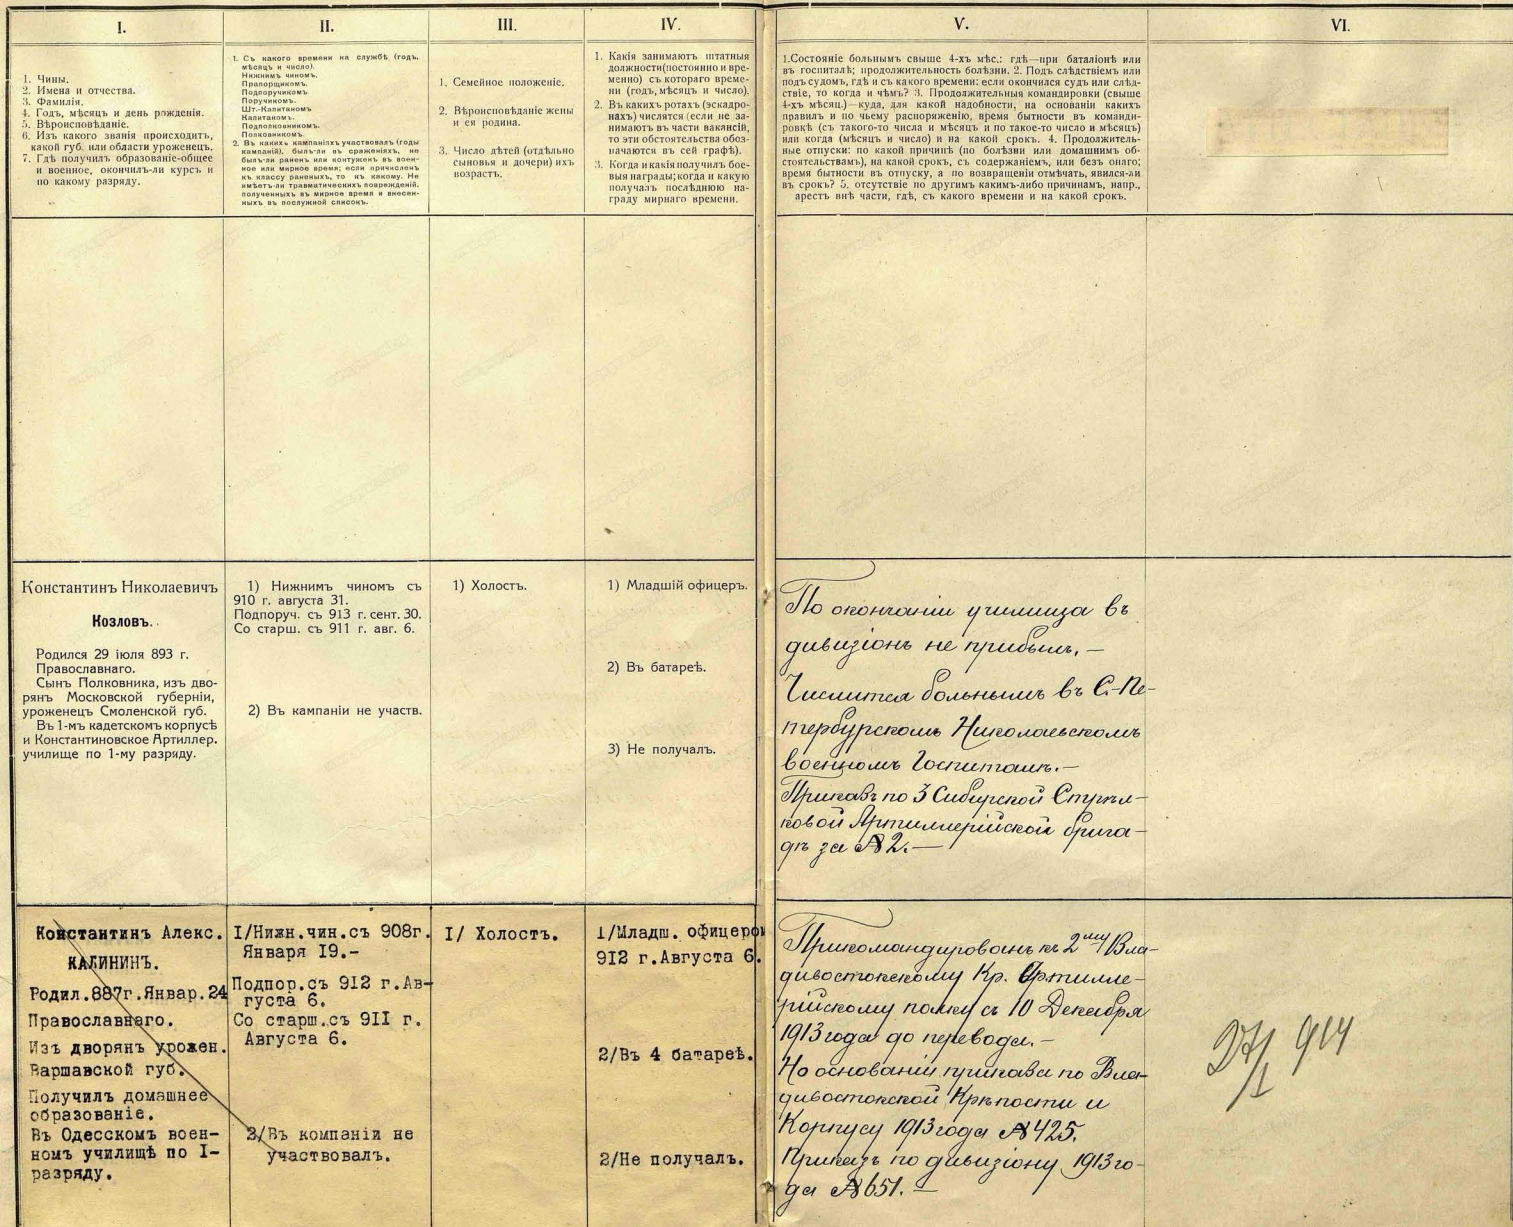 I.
1. Чины.
2. Имена и отчества.
3. Фамилія.
4. Годъ, мѣсяцъ и день рожденія.
5. Вѣроисповѣданіе.
6. Изъ какого званія происходитъ,
какой губ. или области уроженецъ.
7. Гдѣ получилъ образованіе-общее
и военное, окончилъ-ли курсъ и
по какому разряду.
II.
1. Съ какого времени на службѣ (годъ,
мѣсяцъ и число).
Нижнимъ чиномъ.
Прапорщикомъ.
Подпоручикомъ.
Поручикомъ.
Шт.-Капитаномъ
Капитаномъ.
Подполковникомъ.
Полковникомъ.
2. Въ какихъ кампаніяхъ участвовалъ (годы
кампаній), былъ-ли въ сраженіяхъ, не
былъ-ли раненъ или контуженъ въ воен-
ное или мирное время; если причисленъ
къ классу раненыхъ, то къ какому. Не
имѣетъ-ли травматическихъ поврежденій,
полученныхъ въ мирное время и внесен-
ныхъ въ послужной списокъ.
III.
1. Семейное положеніе.
2. Вѣроисповѣданіе жены
и ея родина.
3. Число дѣтей (отдѣльно
сыновья и дочери) ихъ
возрастъ.
IV.
1. Какія занимаютъ штатныя
должности(постоянно и вре-
менно) съ котораго време-
ни (годъ, мѣсяцъ и число).
2. Въ какихъ ротахъ (эскадро-
нахъ) числятся (если не за-
нимаютъ въ части вакансій,
то эти обстоятельства обоз-
начаются въ сей графѣ).
3. Когда и какія получилъ бое-
выя награды; когда и какую
получалъ послѣднюю на-
граду мирнаго времени.
V.
1.Состояніе больнымъ свыше 4-хъ мѣс.: гдѣ—при баталіонѣ или
въ госпиталѣ; продолжительность болѣзни. 2. Подъ слѣдствіемъ или
подъ судомъ, гдѣ и съ какого времени: если окончился судъ или слѣд-
ствіе, то когда и чѣмъ? 3. Продолжительныя командировки (свыше
4-хъ мѣсяц.)—куда, для какой надобности, на основаніи какихъ
правилъ и по чьему распоряженію, время бытности въ команди-
ровкѣ (съ такого-то числа и мѣсяцъ и по такое-то число и мѣсяцъ)
или когда (мѣсяцъ и число) и на какой срокъ. 4. Продолжитель-
ные отпуски: по какой причинѣ (по болѣзни или домашнимъ об-
стоятельствамъ), на какой срокъ, съ содержаніемъ, или безъ онаго;
время бытности въ отпуску, а по возвращеніи отмѣчать, явился-ли
въ срокъ? 5. отсутствіе по другимъ какимъ-либо причинамъ, напр.,
арестъ внѣ части, гдѣ, съ какого времени и на какой срокъ.
VI.
Константинъ Николаевичъ
Козловъ.
Родился 29 іюля 893 г.
Православнаго.
Сынъ Полковника, изъ дво-
рянъ Московской губерніи,
уроженецъ Смоленской губ.
Въ 1-мъ кадетскомъ корпусѣ
и Константиновское Артиллер.
училище по 1-му разряду.
1) Нижнимъ чиномъ съ
910 г. августа 31.
Подпоруч. съ 913 г. сент. 30.
Со старш. съ 911 г. авг. 6.
2) Въ кампаніи не участв.
1) Холостъ.
1) Младшій офицеръ.
2) Въ батареѣ.
3) Не получалъ.
По окончаніи училища въ
дивизіонъ не прибылъ.—
Числится больнымъ въ С.-Пе-
тербурскомъ Николаевскомъ
военномъ Госпиталѣ.—
Приказъ по 3 Сибирской Стрѣл-
ковой Артиллерійской брига-
дѣ за №2.—
Константинъ Алекс.
КАЛИНИНЪ.
Родил.887г.Январ.24
Православнаго.
Изъ дворянъ урожен.
Варшавской губ.
Получилъ домашнее
образованіе.
Въ Одесскомъ воен-
номъ училищѣ по I-
разряду.
I/Нижн.чин.съ 908г.
Января I9.-
Подпор.съ 9I2 г.Ав-
густа 6.
Со старш.съ 9II г.
Августа 6.
2/Въ компаніи не
участвовалъ.
I/ Холостъ.
1/Младш. офицеро
9I2 г.Августа 6.
2/Въ 4 батареѣ.
2/Не получалъ.
Прикомандированъ къ 2му Вла-
дивостокскому Кр. Артилле-
рійскому полку съ 10 Декабря
1913 года до перевода.—
На основаніи приказа по Вла-
дивостокской Крѣпости и
Корпусу 1913 года №425.
Приказъ по дивизіону 1913 го-
да №651.—
27/I 914